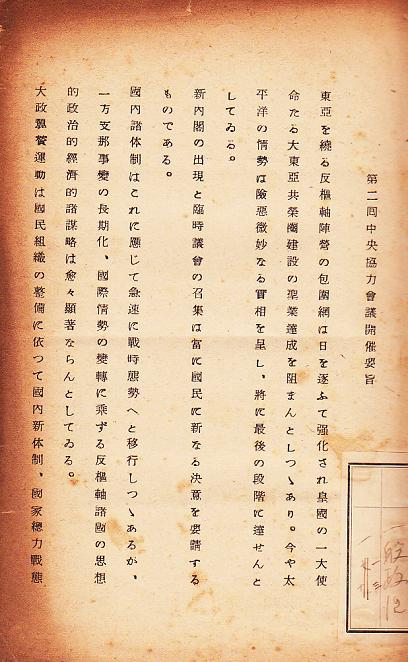 第二囘中央協力會議開催要旨
東亞を繞る反樞軸陣營の包圍網は日を逐ふて强化され皇國の一大使
命たる大東亞共榮圈建設の聖業達成を阻まんとしつゝあり。今や太
平洋の情勢は險惡微妙なる實相を呈し、將に最後の段階に達せんと
してゐる。
新內閣の出現と臨時議會の召集は富に國民に新なる決意を要請する
ものである。
國內諸体制はこれに應じて急速に戰時態勢へと移行しつゝあるが、
一方支那事變の長期化、國際情勢の變轉に乘ずる反樞軸諸國の思想
的政治的經濟的諸謀略は愈々顯著ならんとしてゐる。
大政翼贊運動は國民組織の整備に依つて國內新体制、國家總力戰態
一般政